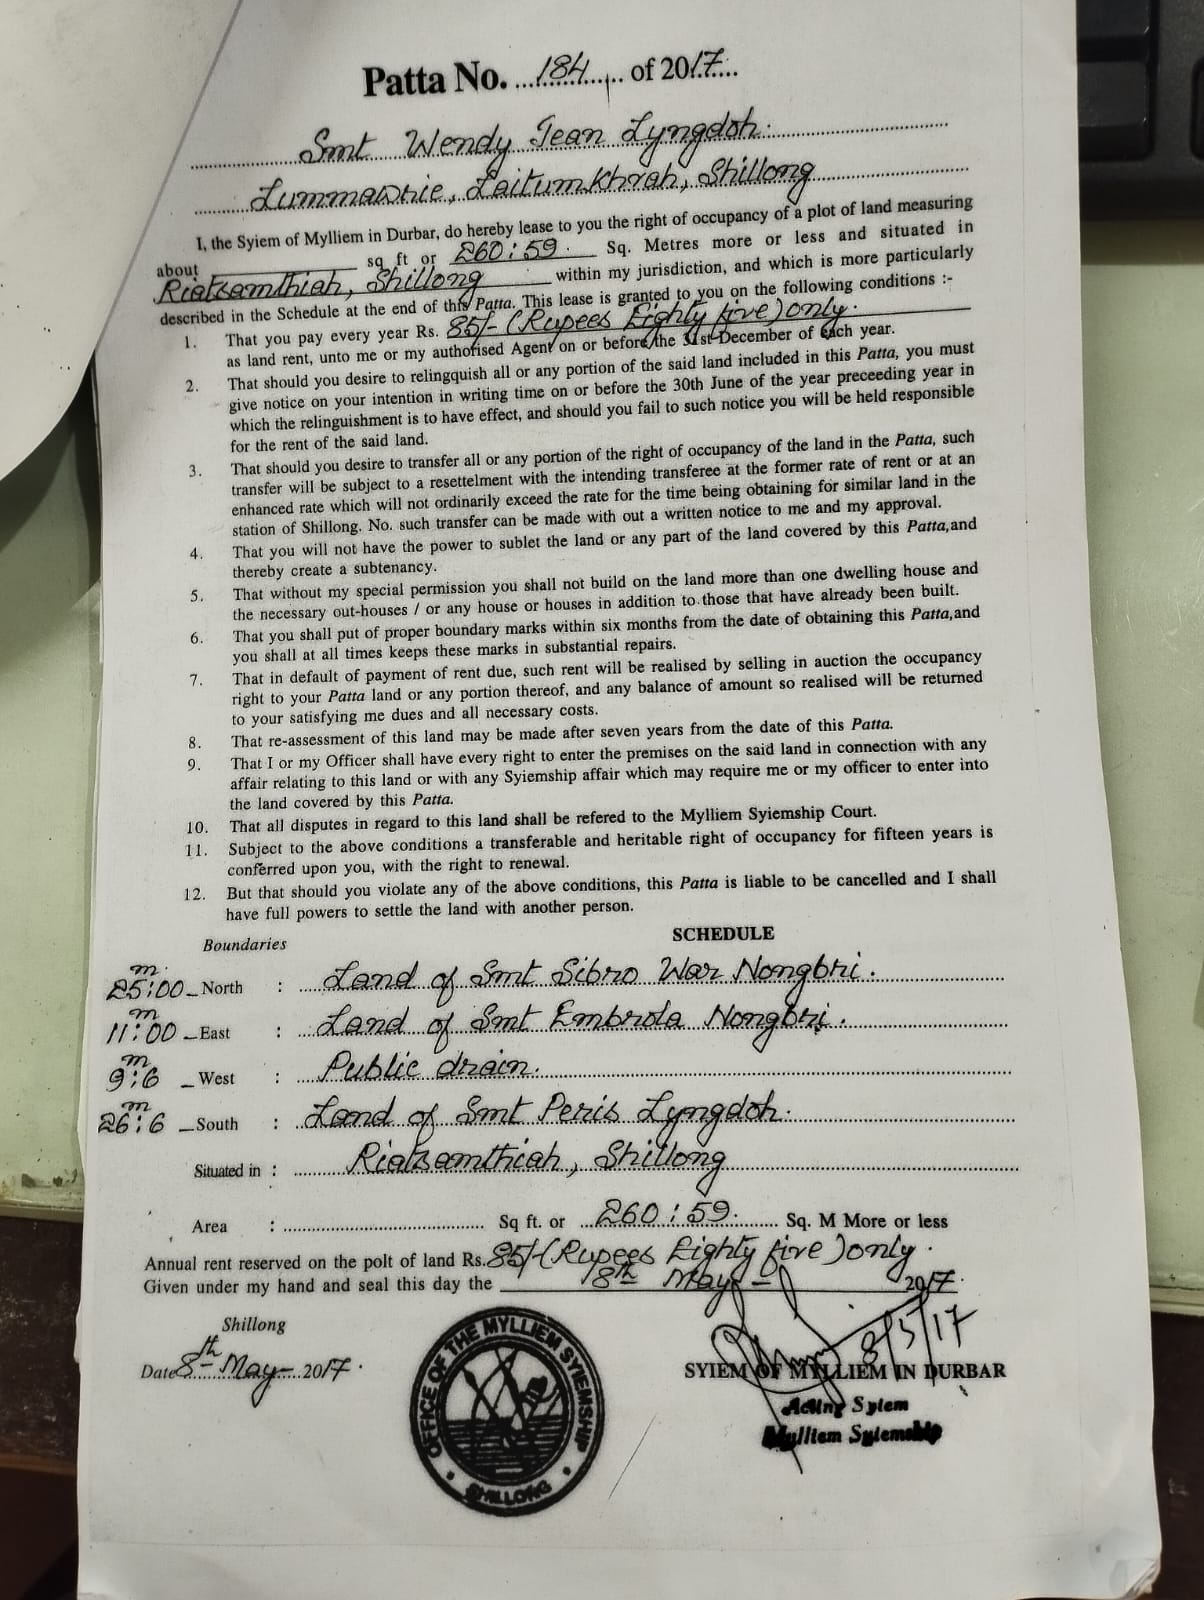 Patta No. 184 of 2017
Smt Wendy Jean Lyngdoh.
Lummawrie, Laitumkhrah, Shillong
I, the Syiem of Mylliem in Durbar, do hereby lease to you the right of occupancy of a plot of land measuring
about sq ft or 260:59. Sq. Metres more or less and situated in
Riatsamthiah, Shillong within my jurisdiction, and which is more particularly
described in the Schedule at the end of this Patta. This lease is granted to you on the following conditions :-
1. That you pay every year Rs. 85/- (Rupees Eighty five) only.
as land rent, unto me or my authorised Agent on or before the 31st December of each year.
2. That should you desire to relingquish all or any portion of the said land included in this Patta, you must
give notice on your intention in writing time on or before the 30th June of the year preceeding year in
which the relinguishment is to have effect, and should you fail to such notice you will be held responsible
for the rent of the said land.
3. That should you desire to transfer all or any portion of the right of occupancy of the land in the Patta, such
transfer will be subject to a resettelment with the intending transferee at the former rate of rent or at an
enhanced rate which will not ordinarily exceed the rate for the time being obtaining for similar land in the
station of Shillong. No. such transfer can be made with out a written notice to me and my approval.
4. That you will not have the power to sublet the land or any part of the land covered by this Patta,and
thereby create a subtenancy.
5. That without my special permission you shall not build on the land more than one dwelling house and
the necessary out-houses / or any house or houses in addition to those that have already been built.
6. That you shall put of proper boundary marks within six months from the date of obtaining this Patta,and
you shall at all times keeps these marks in substantial repairs.
7. That in default of payment of rent due, such rent will be realised by selling in auction the occupancy
right to your Patta land or any portion thereof, and any balance of amount so realised will be returned
to your satisfying me dues and all necessary costs.
8. That re-assessment of this land may be made after seven years from the date of this Patta.
9. That I or my Officer shall have every right to enter the premises on the said land in connection with any
affair relating to this land or with any Syiemship affair which may require me or my officer to enter into
the land covered by this Patta.
10. That all disputes in regard to this land shall be refered to the Mylliem Syiemship Court.
11. Subject to the above conditions a transferable and heritable right of occupancy for fifteen years is
conferred upon you, with the right to renewal.
12. But that should you violate any of the above conditions, this Patta is liable to be cancelled and I shall
have full powers to settle the land with another person.
Boundaries SCHEDULE
25:00 m. – North : Land of Smt Sibro War Nongbri.
11:00 m – East : Land of Smt Embrola Nongbri.
9:6 m – West : Public drain.
26:6 m – South : Land of Smt Peris Lyngdoh.
Situated in : Riatsamthiah, Shillong
Area : Sq ft. or 260:59. Sq. M More or less
Annual rent reserved on the polt of land Rs. 85/- (Rupees Eighty five) only.
Given under my hand and seal this day the 8th May – 2017.
Shillong
Date 8th – May – 2017.
OFFICE OF THE MYLLIEM SYIEMSHIP
SHILLONG
8/5/17
SYIEM OF MYLLIEM IN DURBAR
Acting Syiem
Mylliem Syiemship